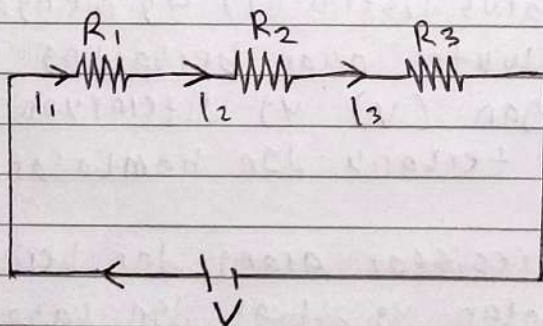 R₁ R₂ R₃
I₁ I₂ I₃
V